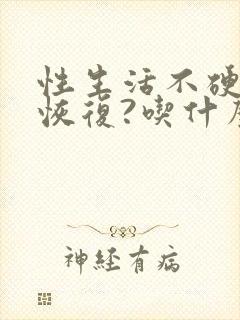 性生活不硬
恢復?喫什
神經有病